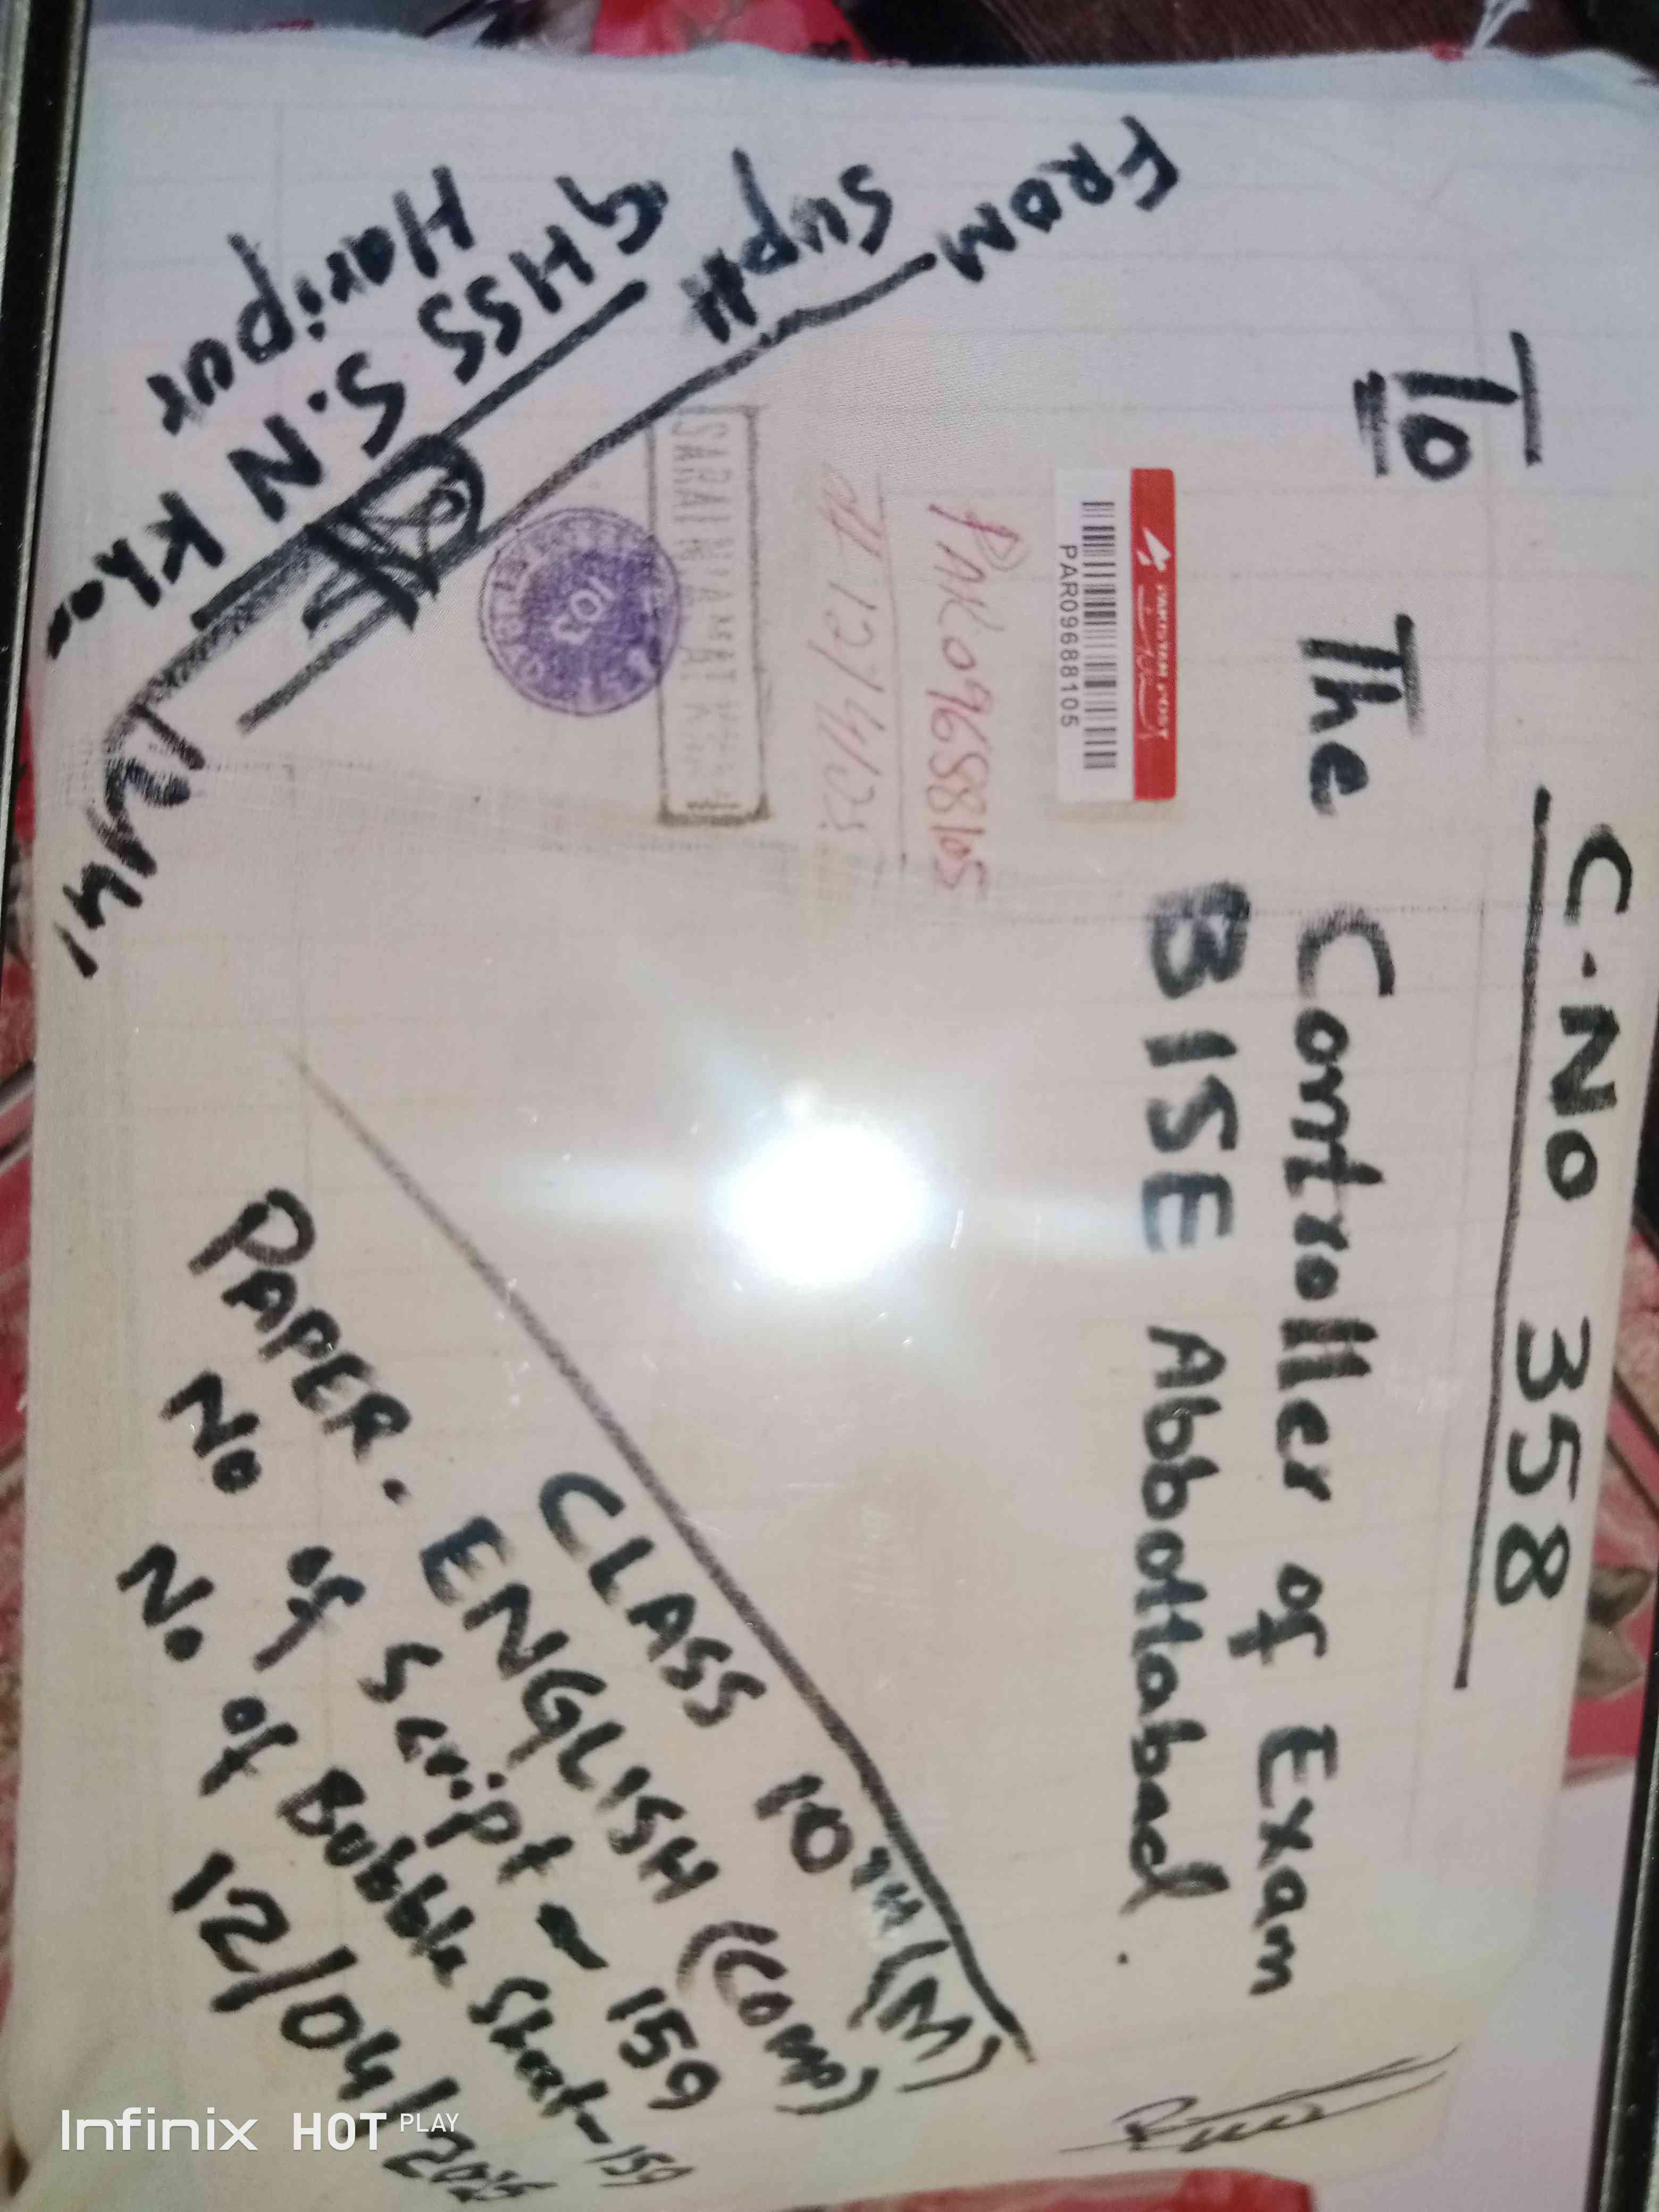 C.No 358
To The Controller of Exam
BISE Abbottabad.
PAKISTAN POST
PAR09688105
PAR09688105
12/4/25
SARAI NIAMAT
103
FROM
Supdt
GHSS S.N Khan
Haripur
CLASS 10TH (M)
PAPER. ENGLISH (Comp)
No of Script - 159
No. of Bubble Sheet - 159
12/04/2025
Infinix HOT PLAY